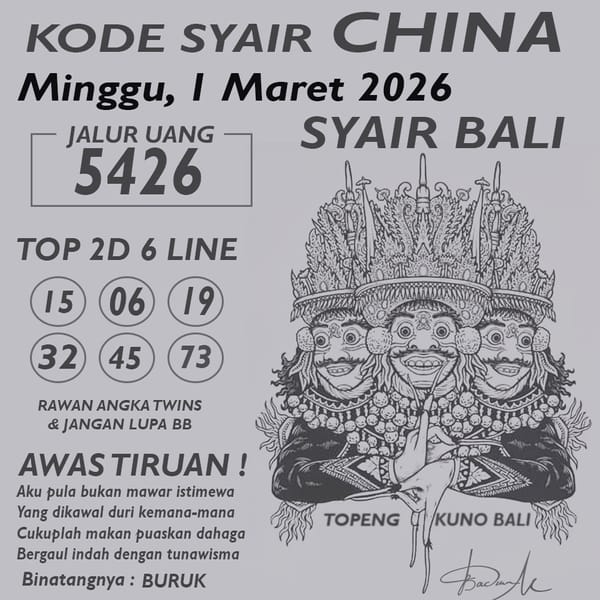 KODE SYAIR CHINA
Minggu, 1 Maret 2026
SYAIR BALI
JALUR UANG
5426
TOP 2D 6 LINE
15 06 19
32 45 73
RAWAN ANGKA TWINS
& JANGAN LUPA BB
AWAS TIRUAN !
Aku pula bukan mawar istimewa
Yang dikawal duri kemana-mana
Cukuplah makan puaskan dahaga
Bergaul indah dengan tunawisma
Binatangnya : BURUK
TOPENG KUNO BALI